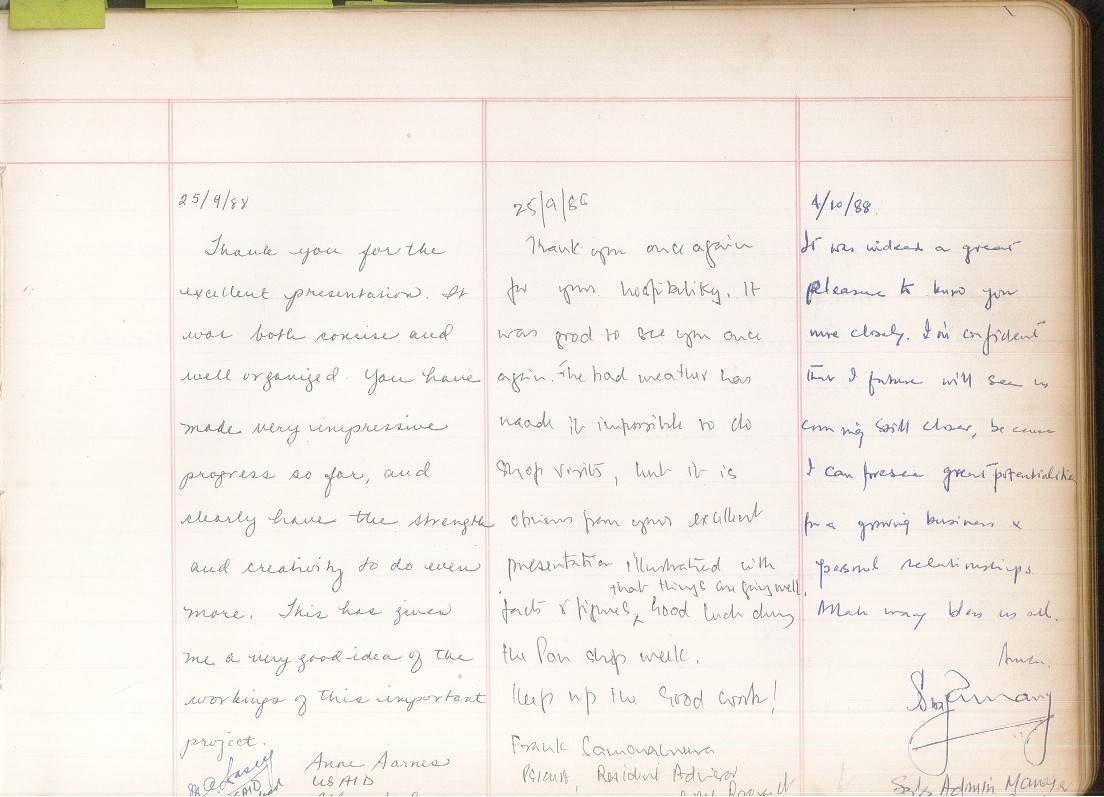 25/9/88
Thank you for the
excellent presentation. It
was both concise and
well organized. You have
made very impressive
progress so far, and
clearly have the strength
and creativity to do even
more. This has given
me a very good idea of the
workings of this important
project.
Anne Aarnes
USAID
25/9/88
Thank you once again
for your hospitality. It
was good to see you once
again. The bad weather has
made it impossible to do
shop visits, but it is
obvious from your excellent
presentation illustrated with
that things are going well.
facts & figures, Good luck
the Pan shop week.
Keep up the Good work!
Frank
Resident Advisor
4/10/88.
It was indeed a great
pleasure to know you
more closely. I'm confident
that future will see us
coming still closer, because
I can foresee great potentialities
for a growing business &
personal relationships.
Allah may bless us all.
Amen.
Sales Admin Manager